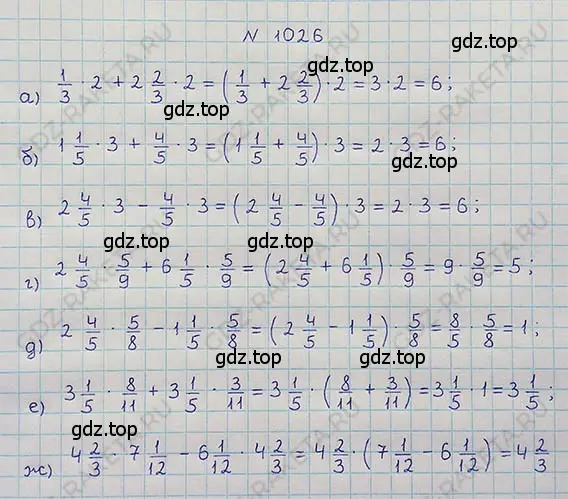 N 1026
gdz.top
а) 1/3 · 2 + 2 2/3 · 2 = (1/3 + 2 2/3) · 2 = 3 · 2 = 6;
gdz.top
б) 1 1/5 · 3 + 4/5 · 3 = (1 1/5 + 4/5) · 3 = 2 · 3 = 6;
gdz.top
в) 2 4/5 · 3 − 4/5 · 3 = (2 4/5 − 4/5) · 3 = 2 · 3 = 6;
gdz.top
г) 2 4/5 · 5/9 + 6 1/5 · 5/9 = (2 4/5 + 6 1/5) · 5/9 = 9 · 5/9 = 5;
gdz.top
д) 2 4/5 · 5/8 − 1 1/5 · 5/8 = (2 4/5 − 1 1/5) · 5/8 = 8/5 · 5/8 = 1;
gdz.top
е) 3 1/5 · 8/11 + 3 1/5 · 3/11 = 3 1/5 · (8/11 + 3/11) = 3 1/5 · 1 = 3 1/5;
gdz.top
ж) 4 2/3 · 7 1/12 − 6 1/12 · 4 2/3 = 4 2/3 · (7 1/12 − 6 1/12) = 4 2/3
gdz.top
GDZ-RAKETA.RU